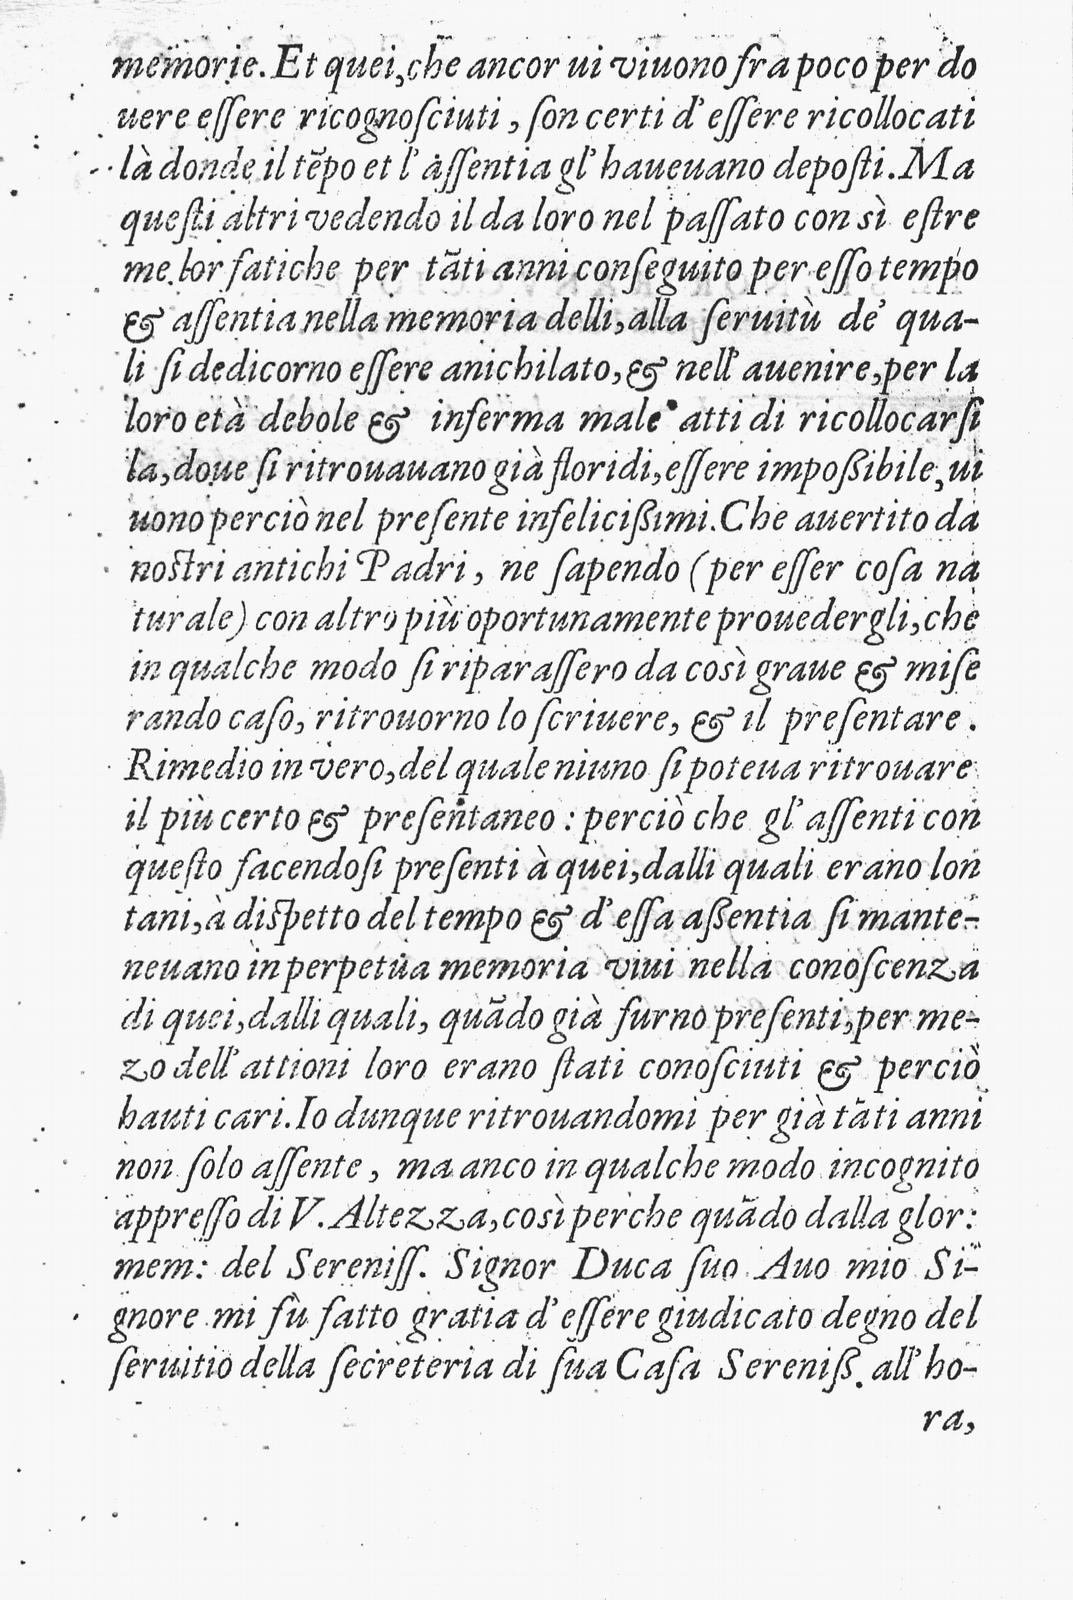 memorie. Et quei, che ancor ui viuono fra poco per do
uere eſſere ricognoſciuti, ſon certi d'eſſere ricollocati
là donde il tẽpo et l'aſſentia gl'haueuano depoſti. Ma
queſti altri vedendo il da loro nel paſſato con sì eſtre
me lor fatiche per tãti anni conſeguito per eſſo tempo
& aſſentia nella memoria delli, alla ſeruitù de' qua-
li ſi dedicorno eſſere anichilato, & nell'auenire, per la
loro età debole & inferma male atti di ricollocarſi
la, doue ſi ritrouauano già floridi, eſſere impoßibile, ui
uono perciò nel preſente infelicißimi. Che auertito da
noſtri antichi Padri, ne ſapendo (per eſſer coſa na
turale) con altro più oportunamente prouedergli, che
in qualche modo ſi riparaſſero da così graue & miſe
rando caſo, ritrouorno lo ſcriuere, & il preſentare.
Rimedio in vero, del quale niuno ſi poteua ritrouare
il più certo & preſentaneo : perciò che gl'aſſenti con
queſto facendoſi preſenti à quei, dalli quali erano lon
tani, à diſpetto del tempo & d'eſſa aßentia ſi mante-
neuano in perpetua memoria viui nella conoſcenza
di quei, dalli quali, quãdo già furno preſenti, per me-
zo dell'attioni loro erano ſtati conoſciuti & perciò
hauti cari. Io dunque ritrouandomi per già tãti anni
non ſolo aſſente, ma anco in qualche modo incognito
appreſſo di V. Altezza, così perche quãdo dalla glor:
mem: del Sereniſſ. Signor Duca ſuo Auo mio Si-
gnore mi fù fatto gratia d'eſſere giudicato degno del
ſeruitio della ſecreteria di ſua Caſa Sereniß. all'ho-
ra,